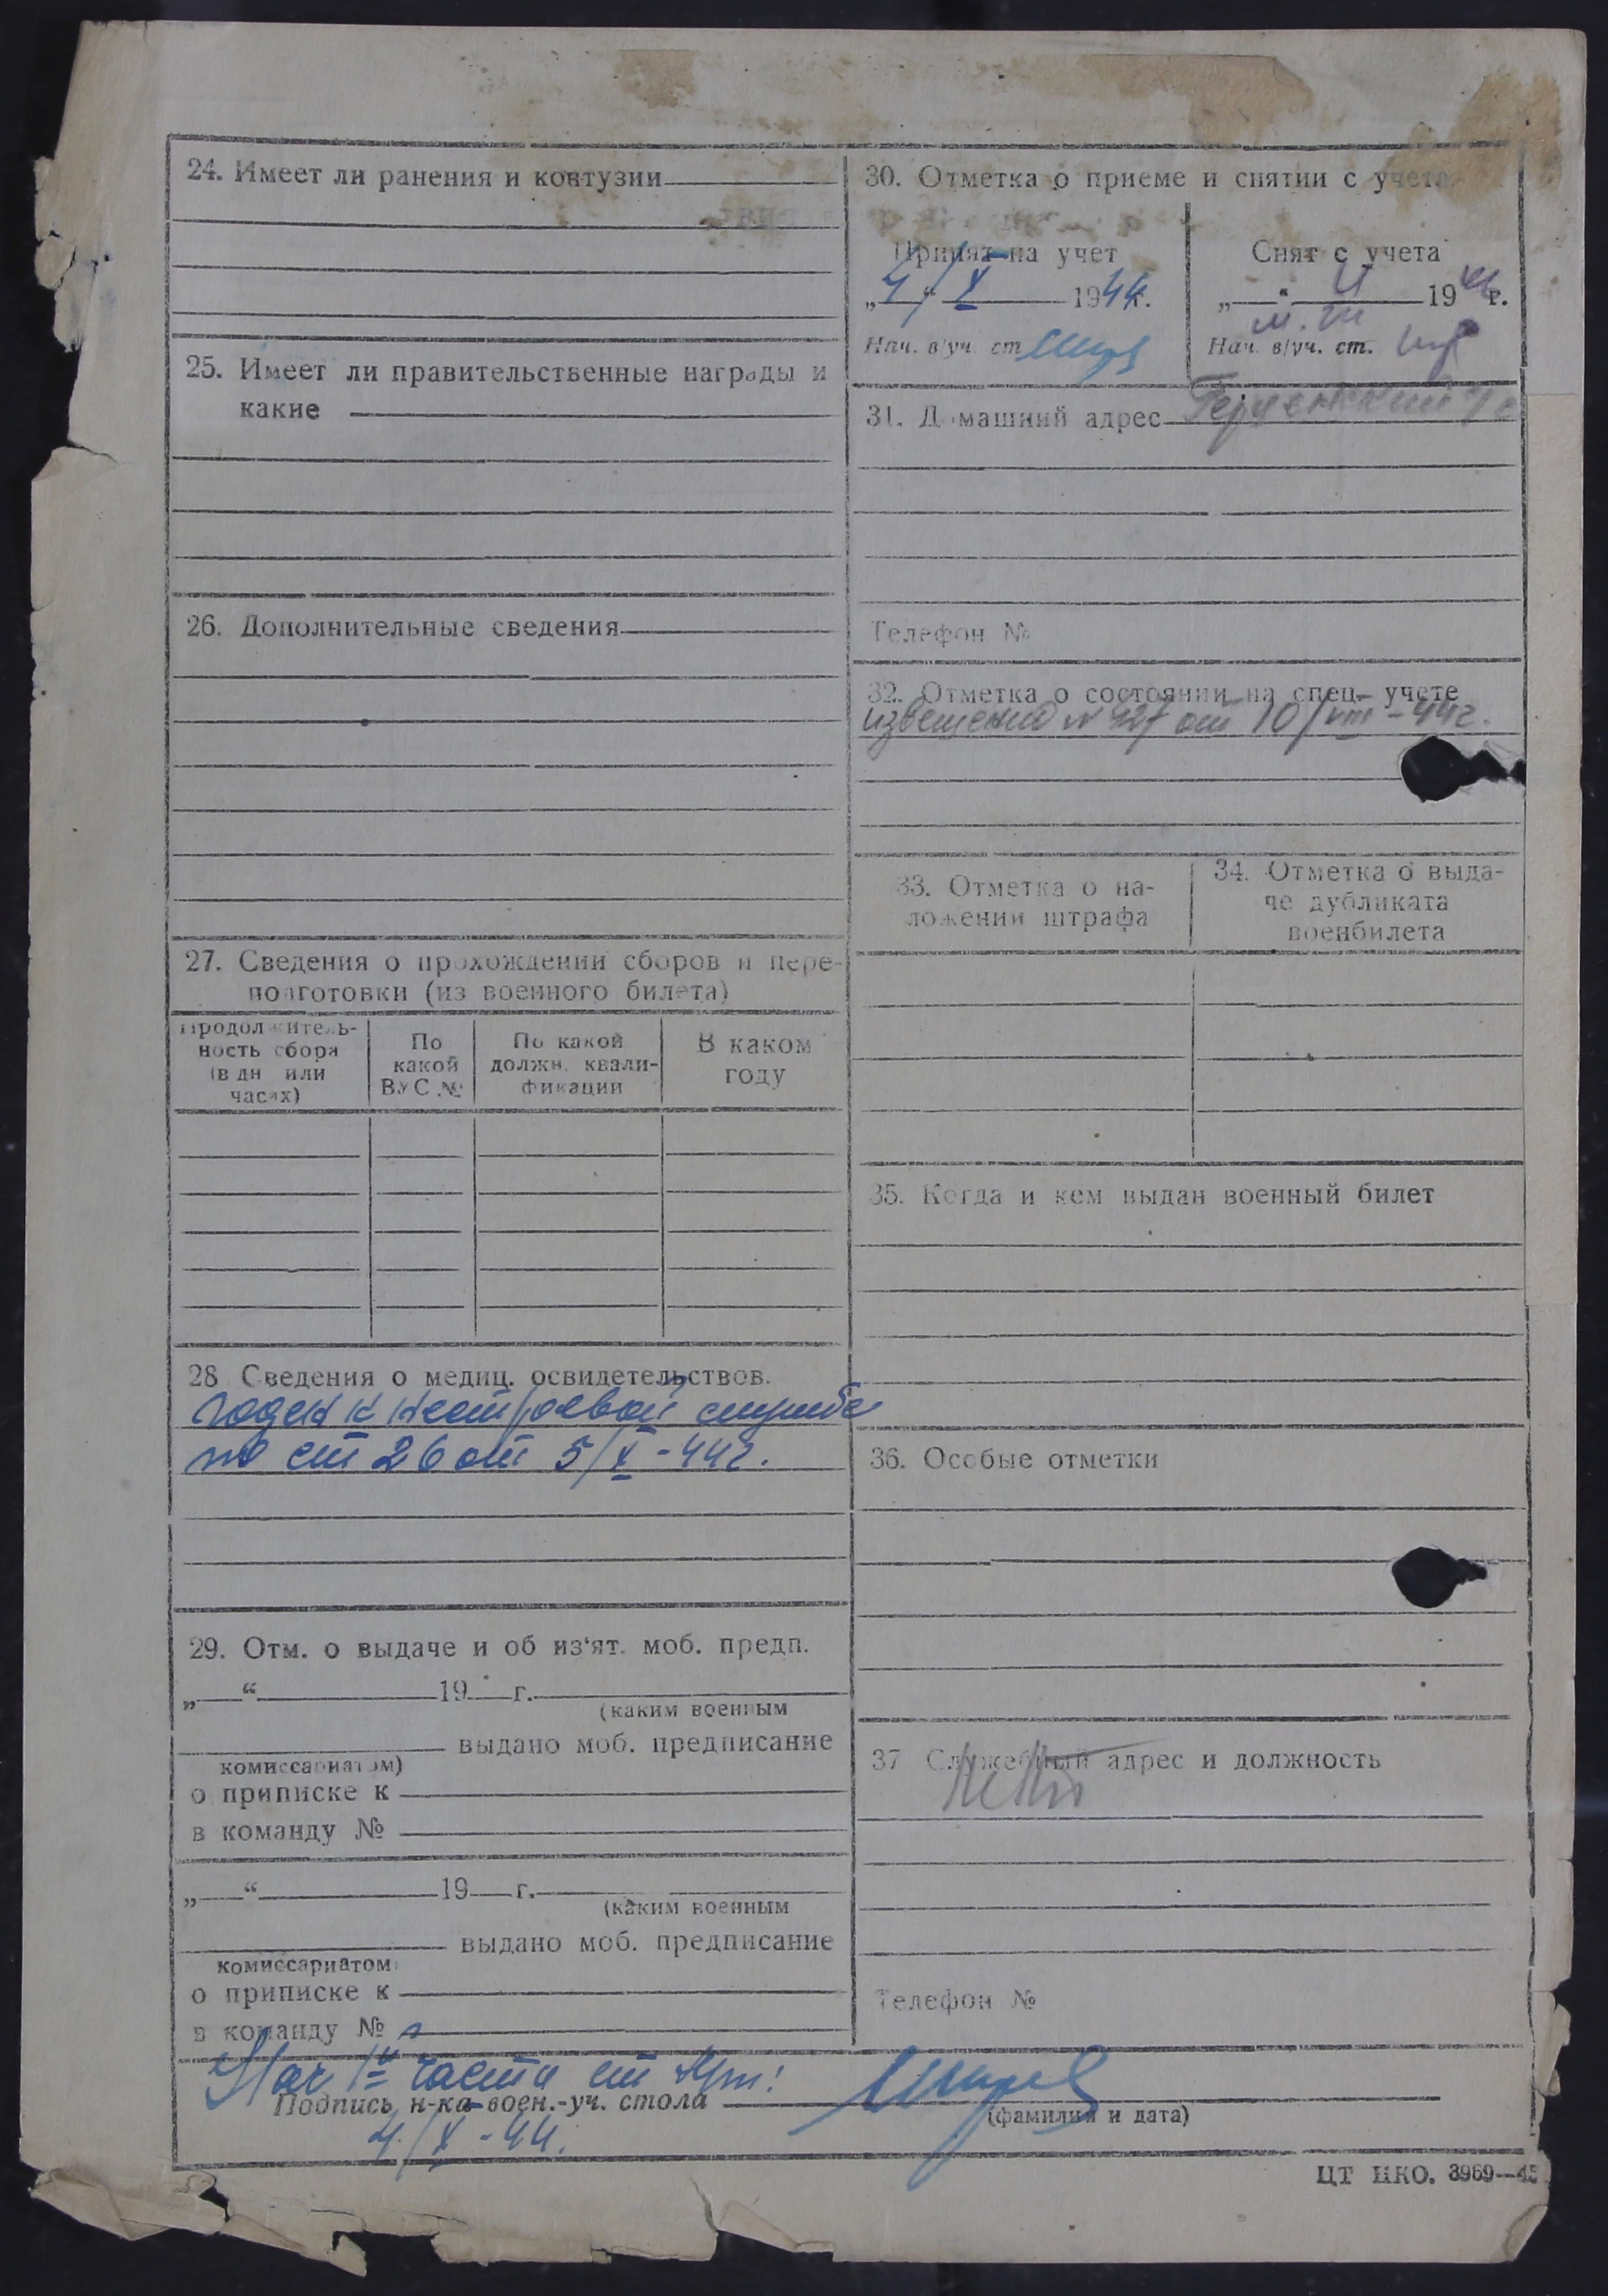 24. Имеет ли ранения и контузии
25. Имеет ли правительственные награды и
какие
26. Дополнительные сведения
27. Сведения о прохождении сборов и пере-
подготовки (из военного билета)
Продолжитель-
ность сбора
(в дн или
часах)
По
какой
ВУС №
По какой
должн. квали-
фикации
В каком
году
28 Сведения о медиц. освидетельствов.
годен к нестроевой службе
по ст 26 от 5/X-44г.
29. Отм. о выдаче и об из'ят. моб. предп.
„ “ 19 г.
(каким военным
выдано моб. предписание
комиссариатом)
о приписке к
в команду №
„ “ 19 г.
(каким военным
выдано моб. предписание
комиссариатом
о приписке к
в команду №
30. Отметка о приеме и снятии с учета
Принят на учет
„4“ X 1944г.
Нач. в/уч. ст
Снят с учета
„ “ 19 г.
Нач. в/уч. ст.
31. Домашний адрес
Телефон №
32. Отметка о состоянии на спец- учете
извещение № 427 от 10/VIII-44г.
33. Отметка о на-
ложении штрафа
34. Отметка о выда-
че дубликата
военбилета
35. Когда и кем выдан военный билет
36. Особые отметки
37 Служебный адрес и должность
Телефон №
Нач 1й части ст
Подпись н-ка воен.-уч. стола
(фамилия и дата)
4/X-44.
ЦТ НКО. 3969—45